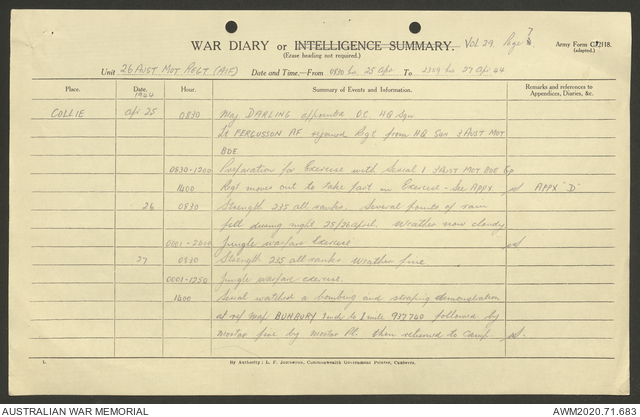 WAR DIARY or INTELLIGENCE SUMMARY. Vol 29. Page 7
(Erase heading not required.)
Army Form C2118.
(adapted.)
Unit 26 AUST MOT REGT (AIF) Date and Time.—From 0830 hrs. 25 Apr To 2359 hrs 27 Apr 44
Place. Date. Hour. Summary of Events and Information. Remarks and references to Appendices, Diaries, &c.
1944
COLLIE Apr 25 0830 Maj DARLING appointed O.C. HQ Sqn
Lt FERGUSSON AF rejoined Regt from HQ Sqn 3 AUST MOT
BDE
0830-1200 Preparation for Exercise with Serial 1 3 AUST MOT BDE Gp
1400 Regt moves out to take part in Exercise - See Appx APPX "D"
26 0830 Strength 235 all ranks. Several points of rain
fell during night 25/26 April. Weather now cloudy
0001-2010 Jungle warfare Exercise
27 0830 Strength 235 all ranks. Weather fine
0001-1250 Jungle warfare exercise.
1400 Serial watched a bombing and strafing demonstration
at ref Map BUNBURY 1 inch to 1 mile 937740 followed by
mortar fire by mortar Pl. then returned to camp
L. By Authority: L. F. Johnston, Commonwealth Government Printer, Canberra.
AUSTRALIAN WAR MEMORIAL
AWM2020.71.683